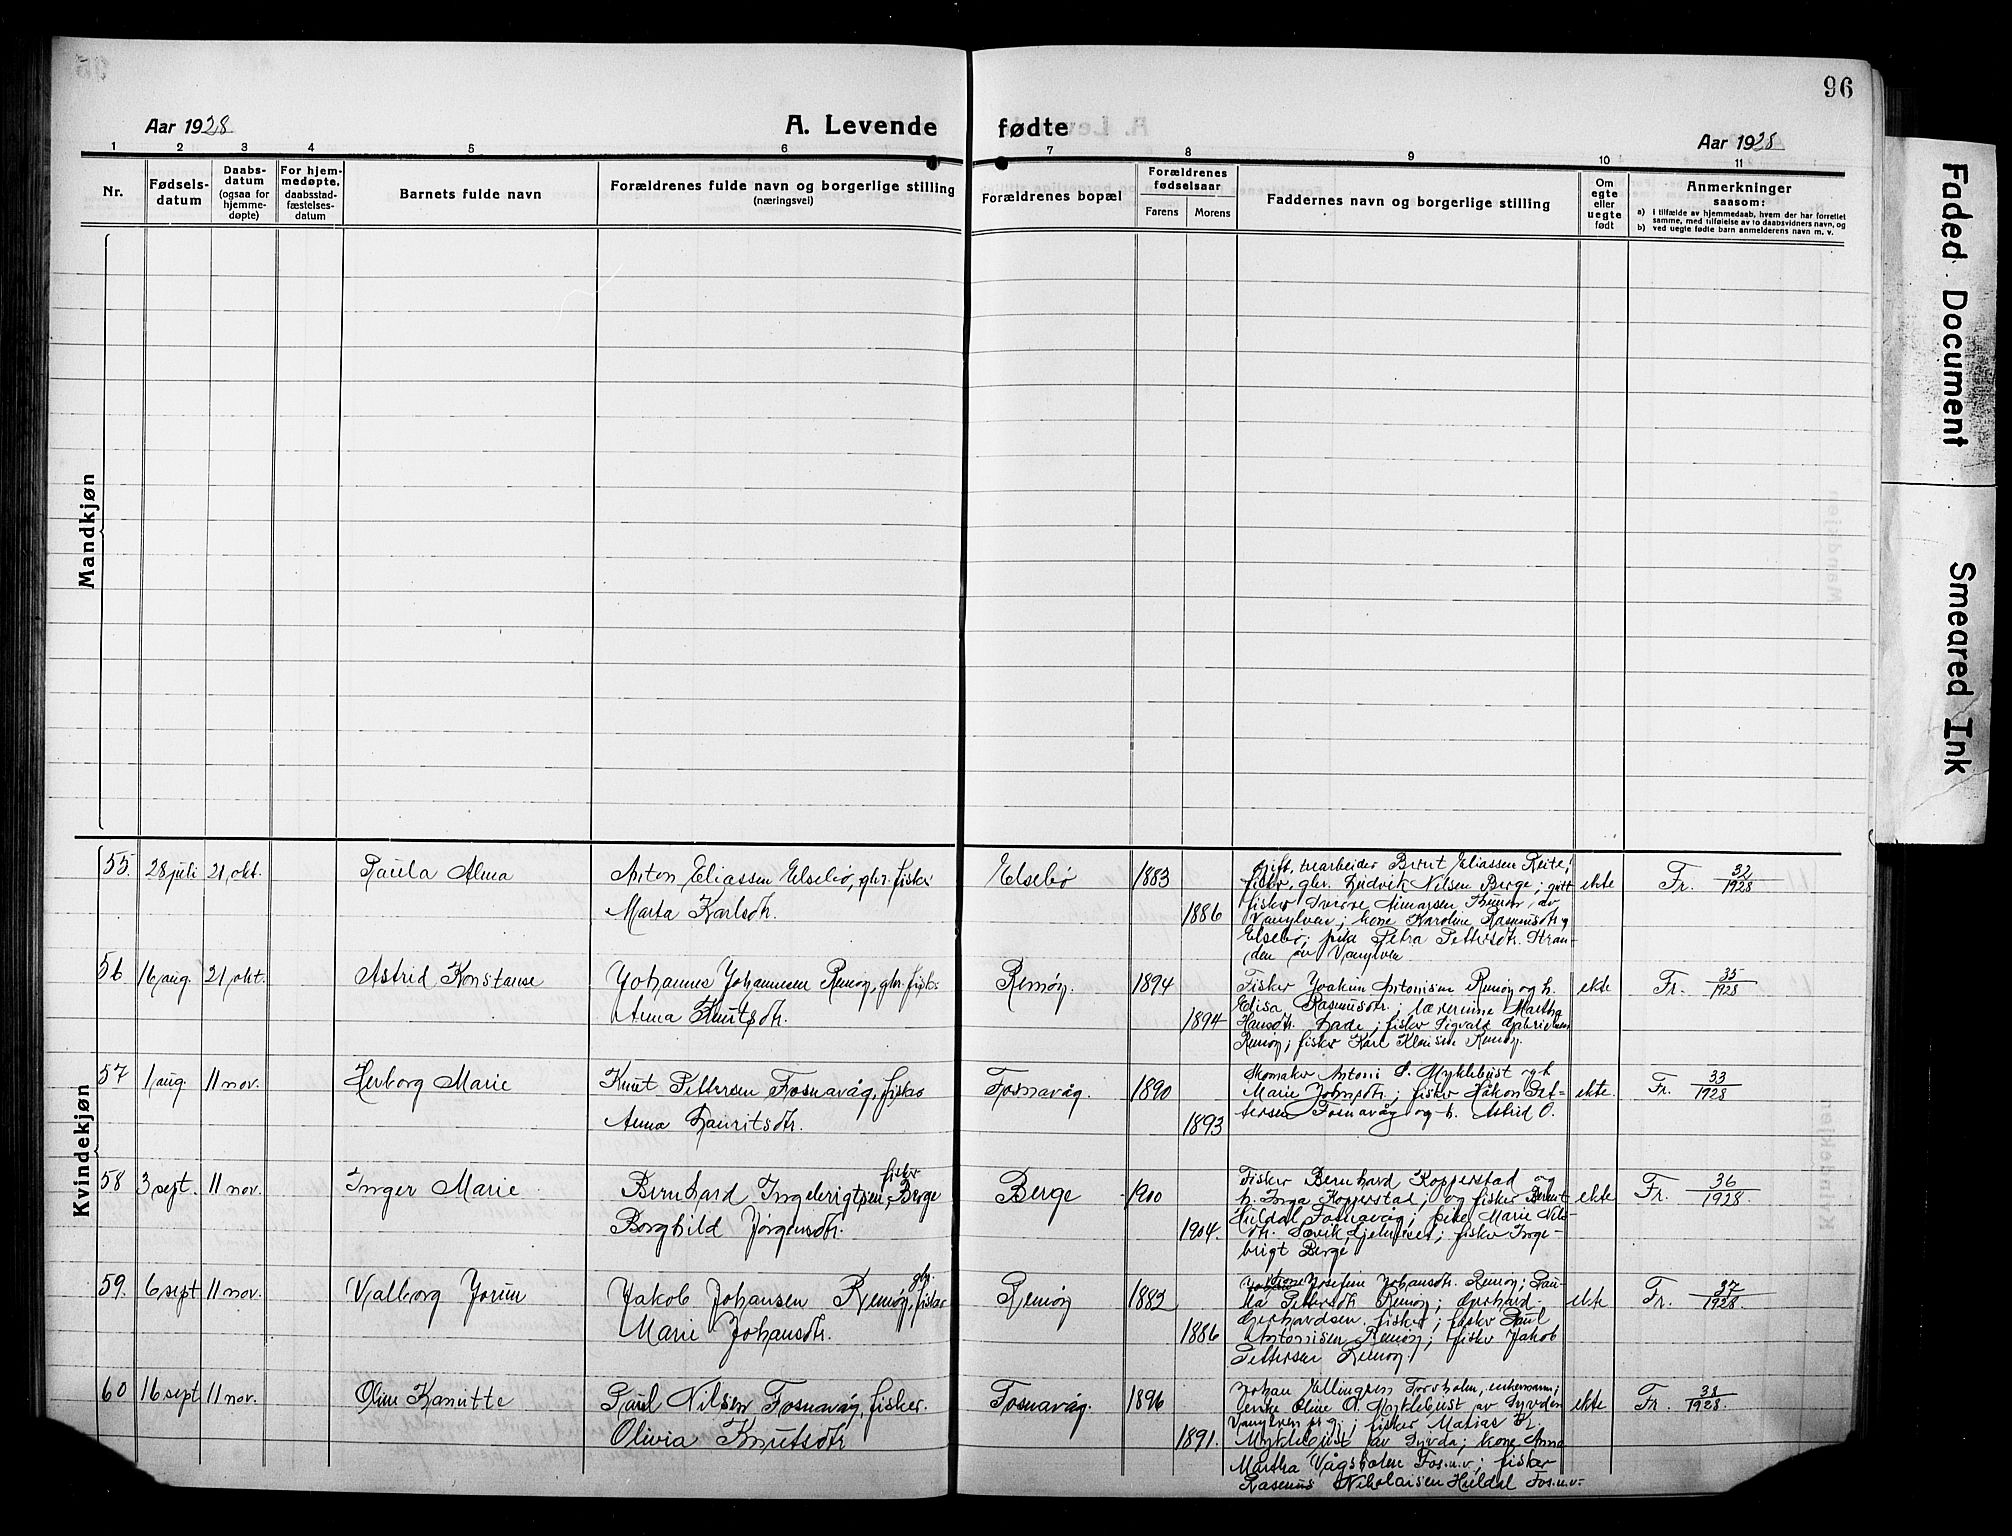 96
Aar 1928
A. Levende fødte
Aar 1928
1 2 3 4 5 6 7 8 9 10 11
Nr.
Fødsels-
datum
Daabs-
datum
(ogsaa for
hjemme-
døpte)
For hjem-
medøpte,
daabsstad-
fæstelses-
datum
Barnets fulde navn
Forældrenes fulde navn og borgerlige stilling
(næringsvei)
Forældrenes bopæl
Forældrenes
fødselsaar
Farens Morens
Faddernes navn og borgerlige stilling
Om
egte
eller
uegte
født
Anmerkninger
saasom:
a) i tilfælde av hjemmedaab, hvem der har forrettet
samme, med tilføielse av to daabsvidners navn, og
b) ved uegte fødte barn anmelderens navn m. v.
Mandkjøn
Kvindekjøn
55. 28 juli 21. okt. Paula Alma
Anton Eliassen Elsebø, gbr. fisker
Marta Karlsdtr.
Elsebø 1883
1886
gift, trearbeider Bernt Eliassen Reite;
fisker, gbr. Ludvik Nilsen Berge; gift
fisker Sverre
Vanylven; kone Karoline Rasmusdtr
Elsebø; pike Petra Pettersdtr. Stran-
den av Vanylven
ekte Fr. 32/1928
56 16 aug. 21. okt. Astrid Konstanse
Johannes Johannesen Remøy, gbr. fisker
Anna Knutsdtr.
Remøy. 1894
1894
Fisker Joakim Antonisen Remøy og h.
Elisa Rasmusdtr.; lærerinne Martha
Hansdtr. Lade; fisker Sigvald Gabrielsen
Remøy; fisker Karl Klausen Remøy.
ekte Fr. 35/1928
57 1 aug. 11 nov. Herborg Marie
Knut Pettersen Fosnavåg, fisker
Anna Lauritsdtr.
Fosnavåg. 1890
1893
Skomaker Antoni S. Myklebust og h
Marie Johnsdtr.; fisker Håkon Pet-
tersen Fosnavåg og h. Astrid O.
ekte. Fr. 33/1928
58 3 sept. 11 nov. Inger Marie
fisker
Bernhard Ingebrigtsen, Berge
Borghild Jørgensdtr.
Berge 1900
1904.
Fisker Bernhard Kopperstad og
h. Inga Kopperstad; og fisker Bernt
Huldal Fosnavåg; pike Marie Nils-
dtr. Sævik, fisker Inge-
brigt Berge
ekte Fr. 36/1928.
59. 6 sept 11 nov. Valborg Jorun
gbr.
Jakob Johansen Remøy, fisker
Marie Johansdtr.
Remøy 1883
1886
kone Josefine Johansdtr. Remøy; Pau-
la Pettersdtr Remøy; Gerhard
Gerhardsen. fisker; fisker Paul
Antonisen Remøy; fisker Jakob
Pettersen Remøy.
ekte Fr. 37/1928.
60 16 sept 11 nov. Oline Kanutte
Paul Nilsen Fosnavåg, fisker.
Olivia Knutsdtr
Fosnavåg. 1896
1891.
Johan Ellingsen enkemann;
enke Oline O. Myklebust av Syvden
Vanylven pr.gj.; fisker Matias Kr.
Myklebust av Syvda; kone Anna
Martha Vågsholm Fos.n.v; fisker
Rasmus Nikolaisen Huldal Fos.n.v.
ekte Fr. 38/1928.
Faded Document
Smeared Ink